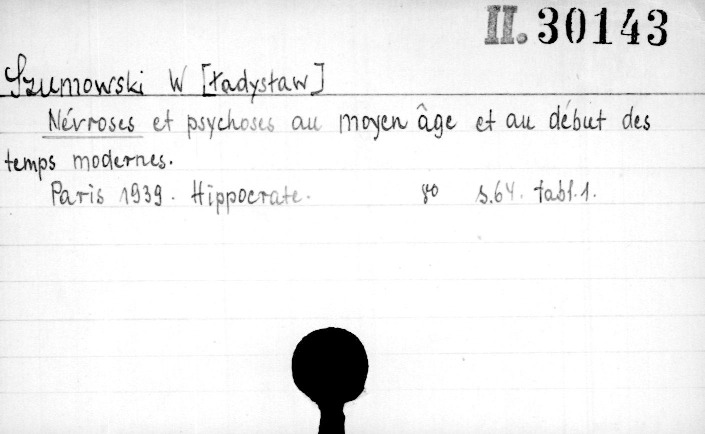 II. 30143
Szumowski W [ładysław]
Névroses et psychoses au moyen âge et au début des
temps modernes.
Paris 1939. Hippocrate. 8o s.64. tabl.1.